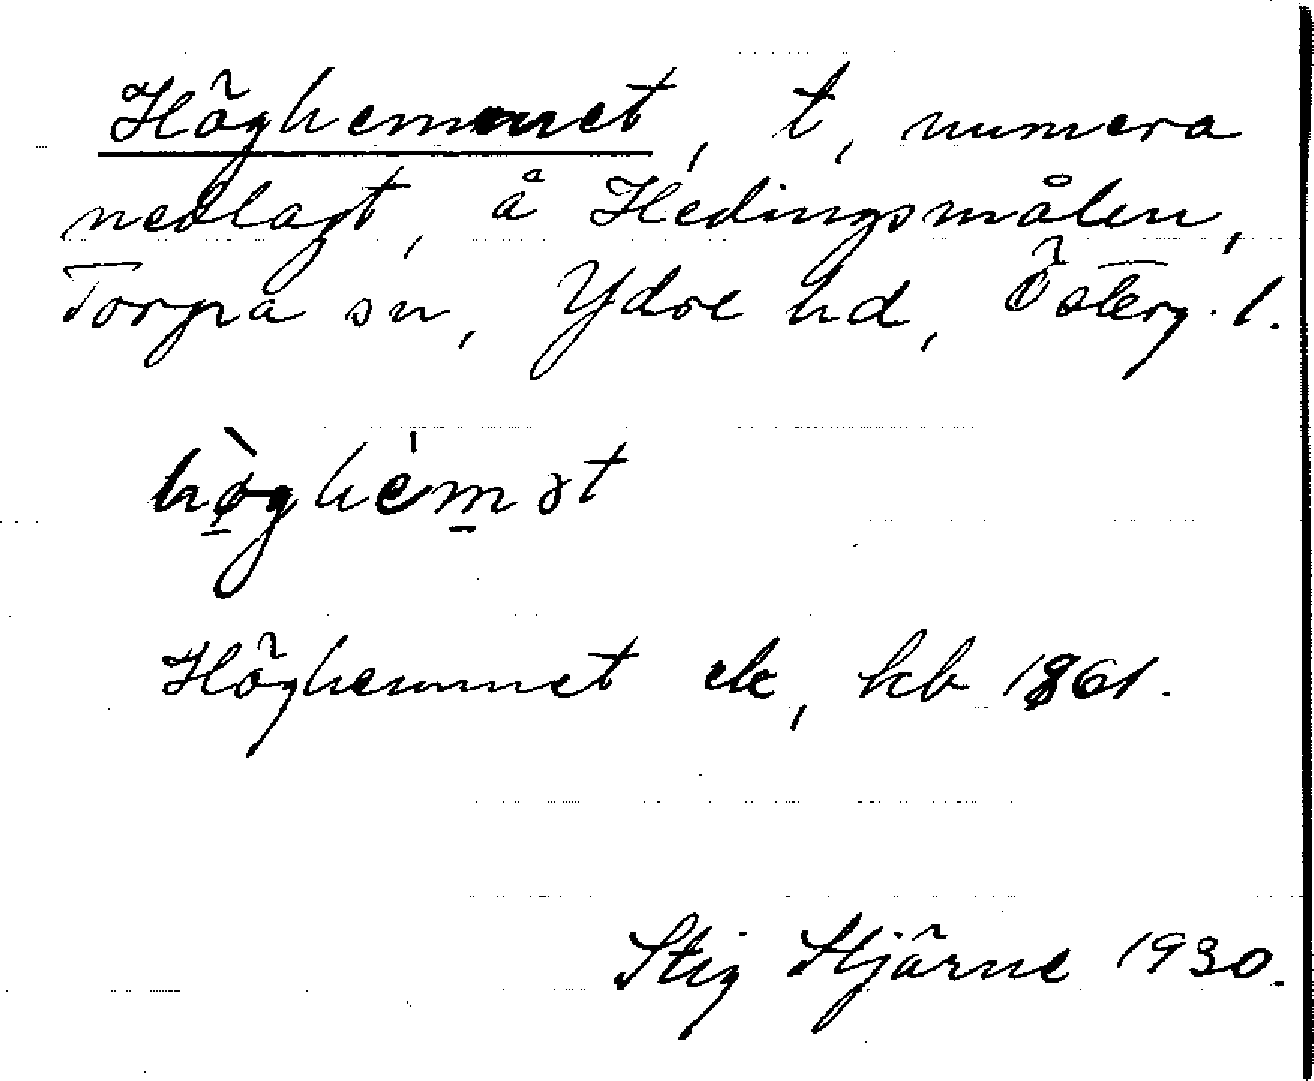 Höghemmet, t, numera
nedlagt, å Hedingsmålen,
Torpa sn, Ydre hd, Österg. l.
hø̀ghémət
Höghemmet ek, kb 1861.
Stig Hjärne 1930.